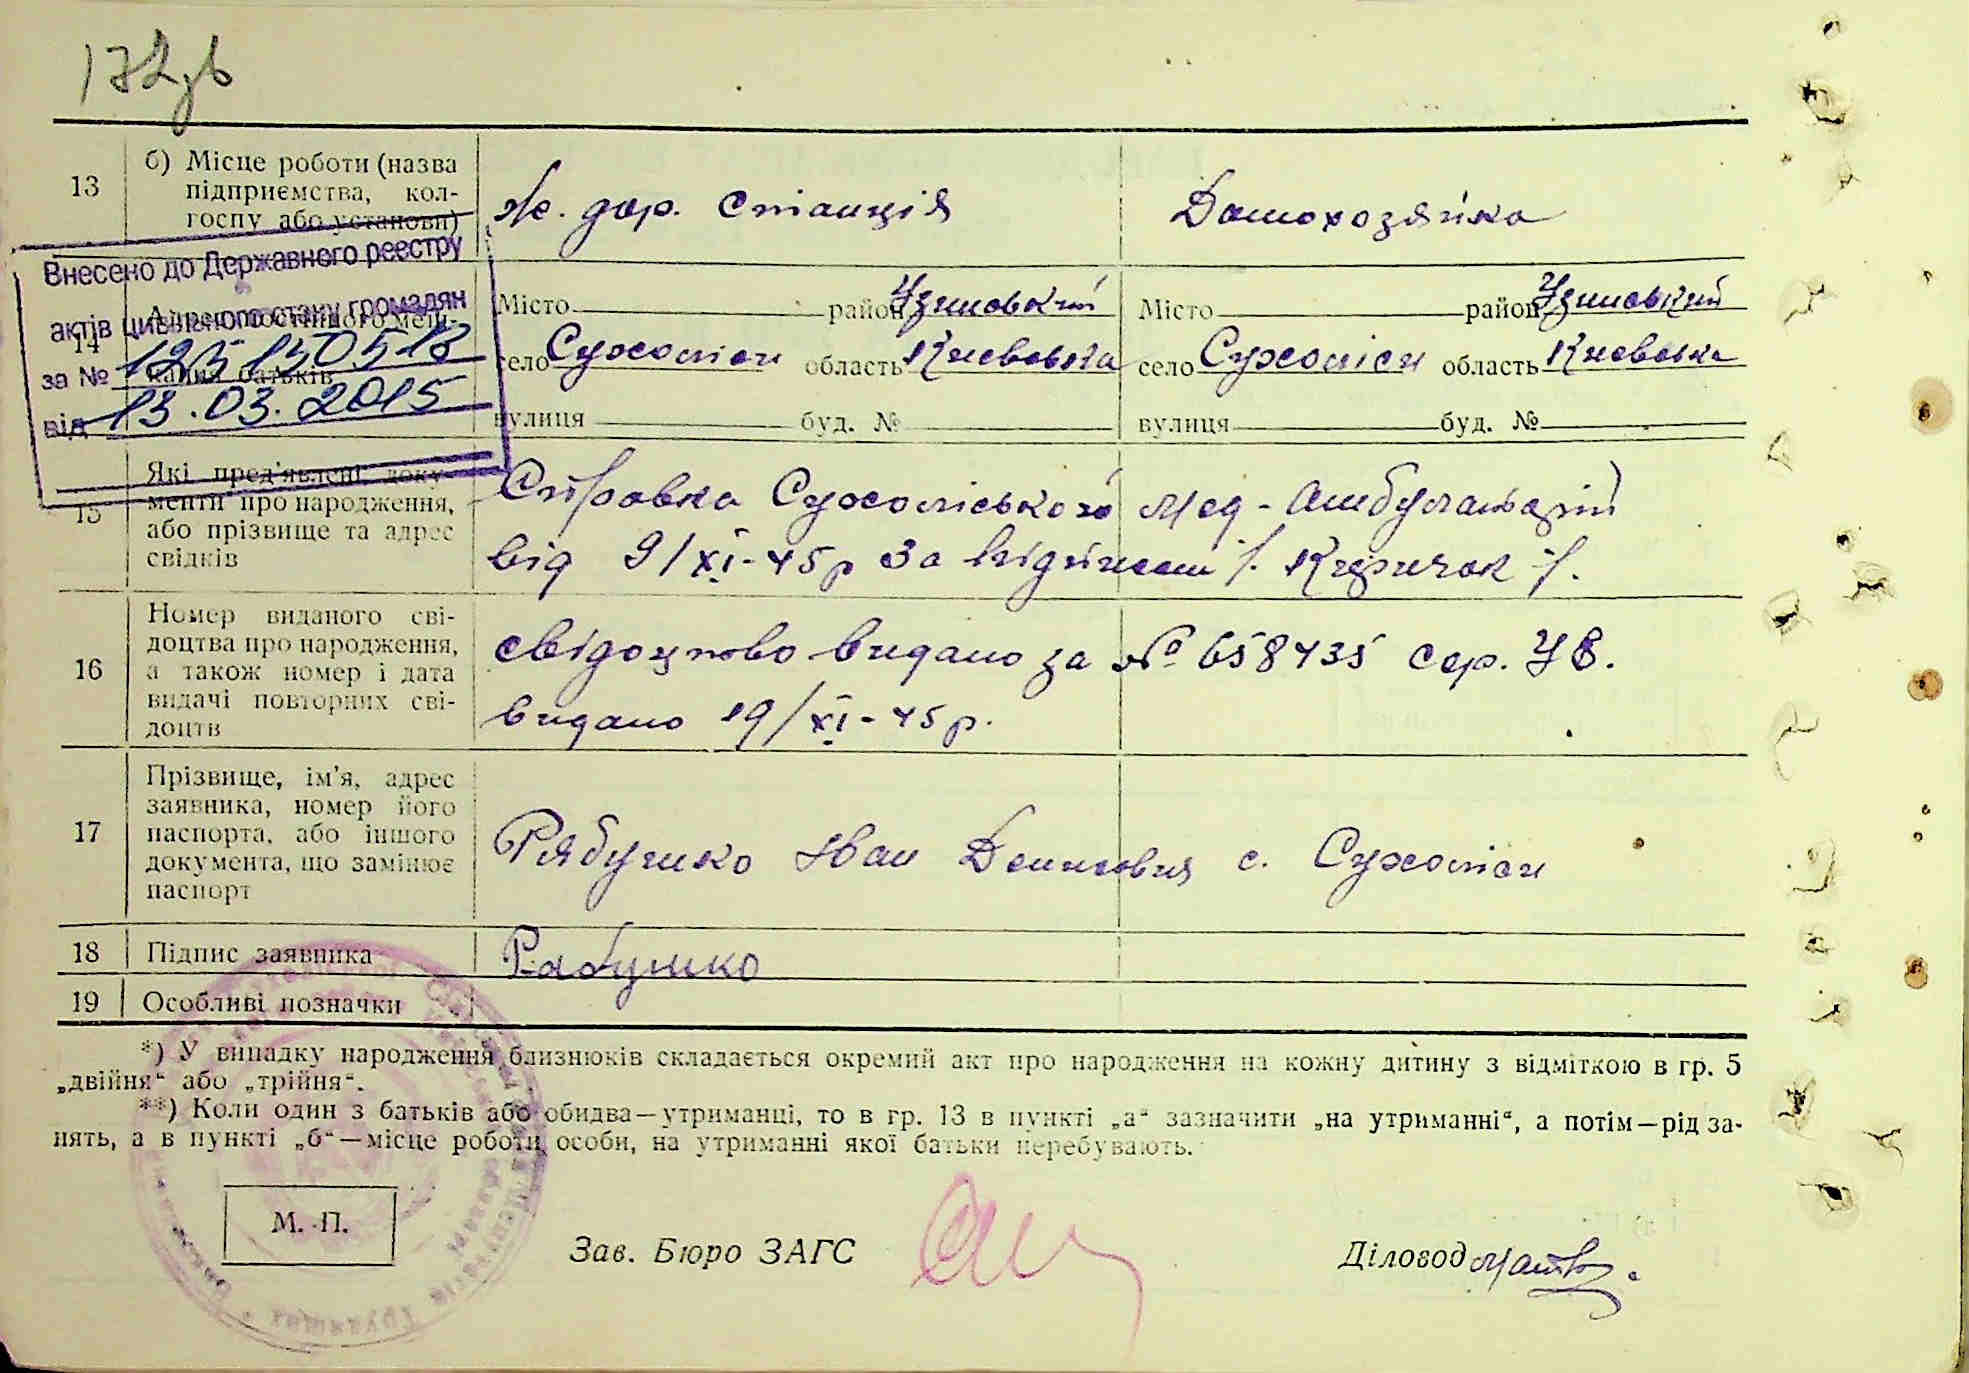 172зв
13
б) Місце роботи (назва
підприємства, кол-
госпу або установи)
Ж. дор. Станція
Домохозяйка
Внесено до Державного реєстру
актів цивільного стану громадян
за №
від 13.03.2015
14
кання батьків
Місто район Узиновский
село Сухоліси область Киевська
вулиця буд. №
Місто район Узиновский
село Сухоліси область Киевська
вулиця буд. №
15
Які пред'явлені доку-
менти про народження,
або прізвище та адрес
свідків
Справка Сухоліської Мед-Амбулаторії
від 9/XI-45р За підписом Киричок
16
Номер виданого сві-
доцтва про народження,
а також номер і дата
видачі повторних сві-
доцтв
свідоцтво видано за № 658435 сер. УВ.
видано 19/XI-45р.
17
Прізвище, ім'я, адрес
заявника, номер його
паспорта, або іншого
документа, що замінює
паспорт
Рябушко Іван Денисович с. Сухоліси
18
Підпис заявника
Рабушко
19
Особливі позначки
*) У випадку народження близнюків складається окремий акт про народження на кожну дитину з відміткою в гр. 5
„двійня“ або „трійня“.
**) Коли один з батьків або обидва—утриманці, то в гр. 13 в пункті „а“ зазначити „на утриманні“, а потім—рід за-
нять, а в пункті „б“—місце роботи особи, на утриманні якої батьки перебувають.
М. П.
Зав. Бюро ЗАГС
Діловод